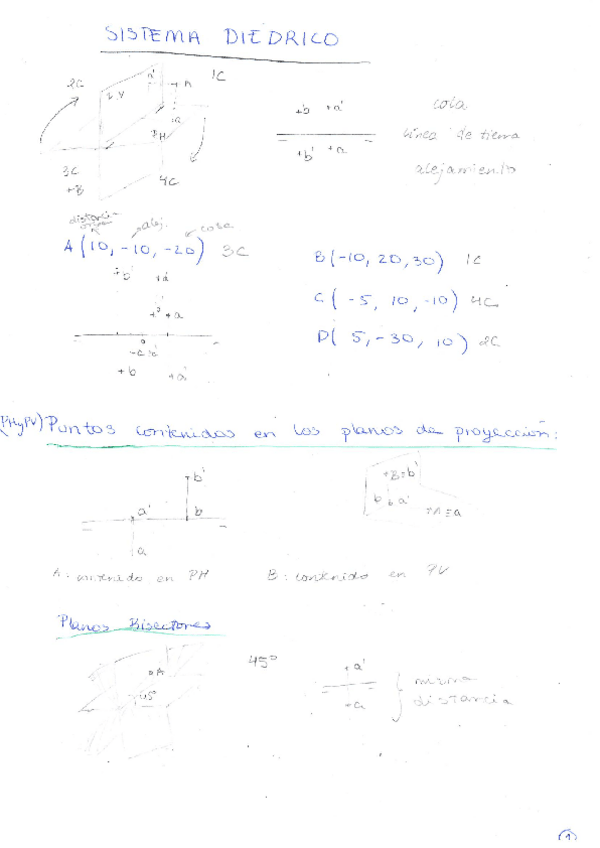 SISTEMA DIEDRICO
2C
1C
a'
A
P.V
a
PH
3C
+B
4C
+b +a'
+b' +a
cota
línea de tierra
alejamiento
distancia
alej.
cota
A (10, -10, -20) 3C
B (-10, 20, 30) 1C
C (-5, 10, -10) 4C
D (5, -30, 10) 2C
+b'
+a
+b
+a'
(PH y PV) Puntos contenidos en los planos de proyección:
b'
a'
b
a
+B≡b'
b
a'
+A≡a
A: contenido en PH
B: contenido en PV
Planos Bisectores
A
45°
45°
a'
a
misma
distancia
1